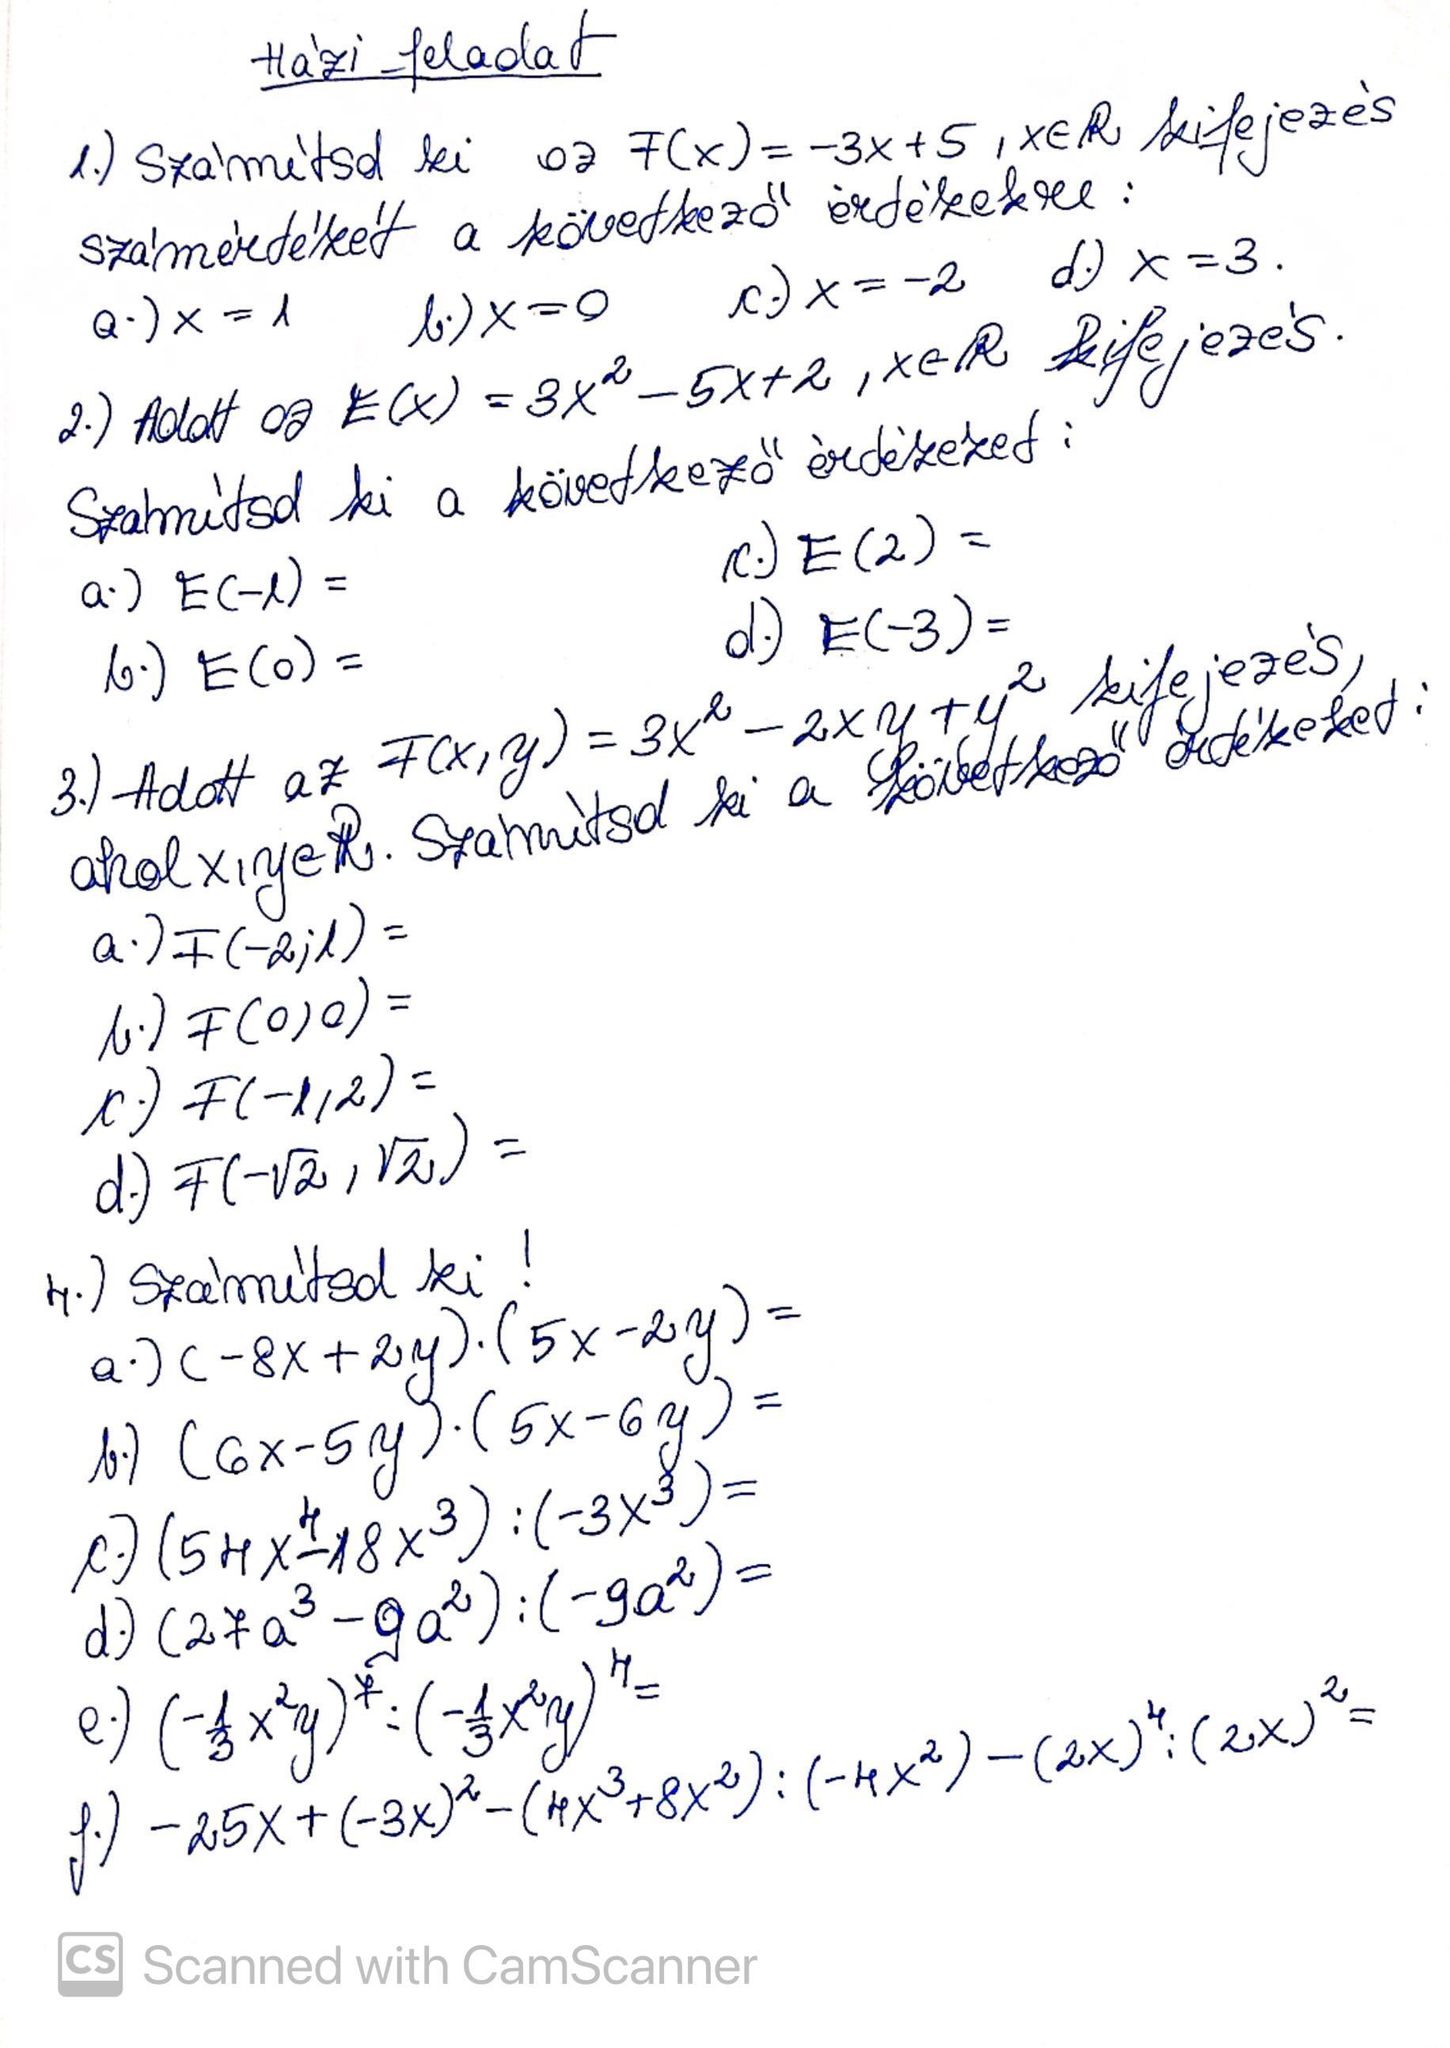 Házi feladat
1.) Számítsd ki az F(x) = -3x+5, x∈R kifejezés
számértékét a következő értékekre:
a.) x = 1 b.) x = 0 c.) x = -2 d.) x = 3.
2.) Adott az E(x) = 3x² - 5x + 2, x∈R kifejezés.
Számítsd ki a következő értékeket:
a.) E(-1) = c.) E(2) =
b.) E(0) = d.) E(-3) =
3.) Adott az F(x,y) = 3x² - 2xy + y² kifejezés,
ahol x,y∈R. Számítsd ki a következő értékeket:
a.) F(-2;1) =
b.) F(0,0) =
c.) F(-1,2) =
d.) F(-√2, √2) =
4.) Számítsd ki!
a.) (-8x+2y)·(5x-2y) =
b.) (6x-5y)·(5x-6y) =
c.) (54x⁴-18x³):(-3x³) =
d.) (27a³-9a²):(-9a²) =
e.) (-1/3 x²y)⁷:(-1/3 x²y)⁴ =
f.) -25x+(-3x)²-(4x³+8x²):(-4x²)-(2x)⁴:(2x)² =
CS Scanned with CamScanner